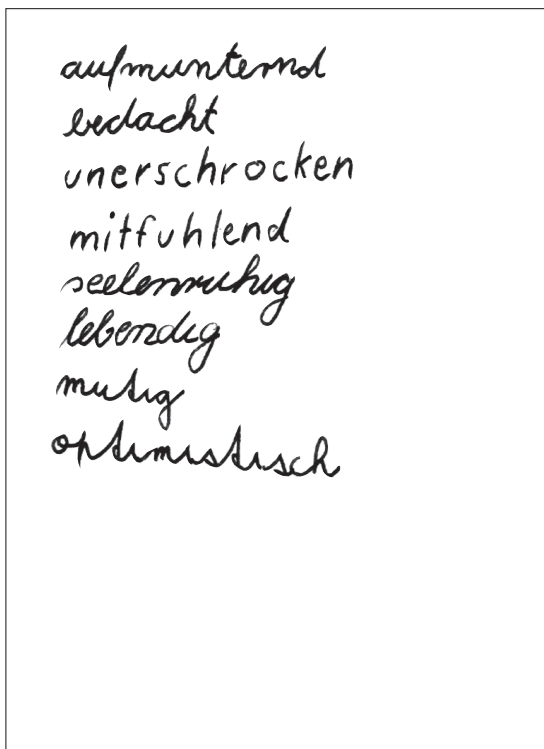 aufmunternd
bedacht
unerschrocken
mitfuhlend
seelenruhig
lebendig
mutig
optimistisch